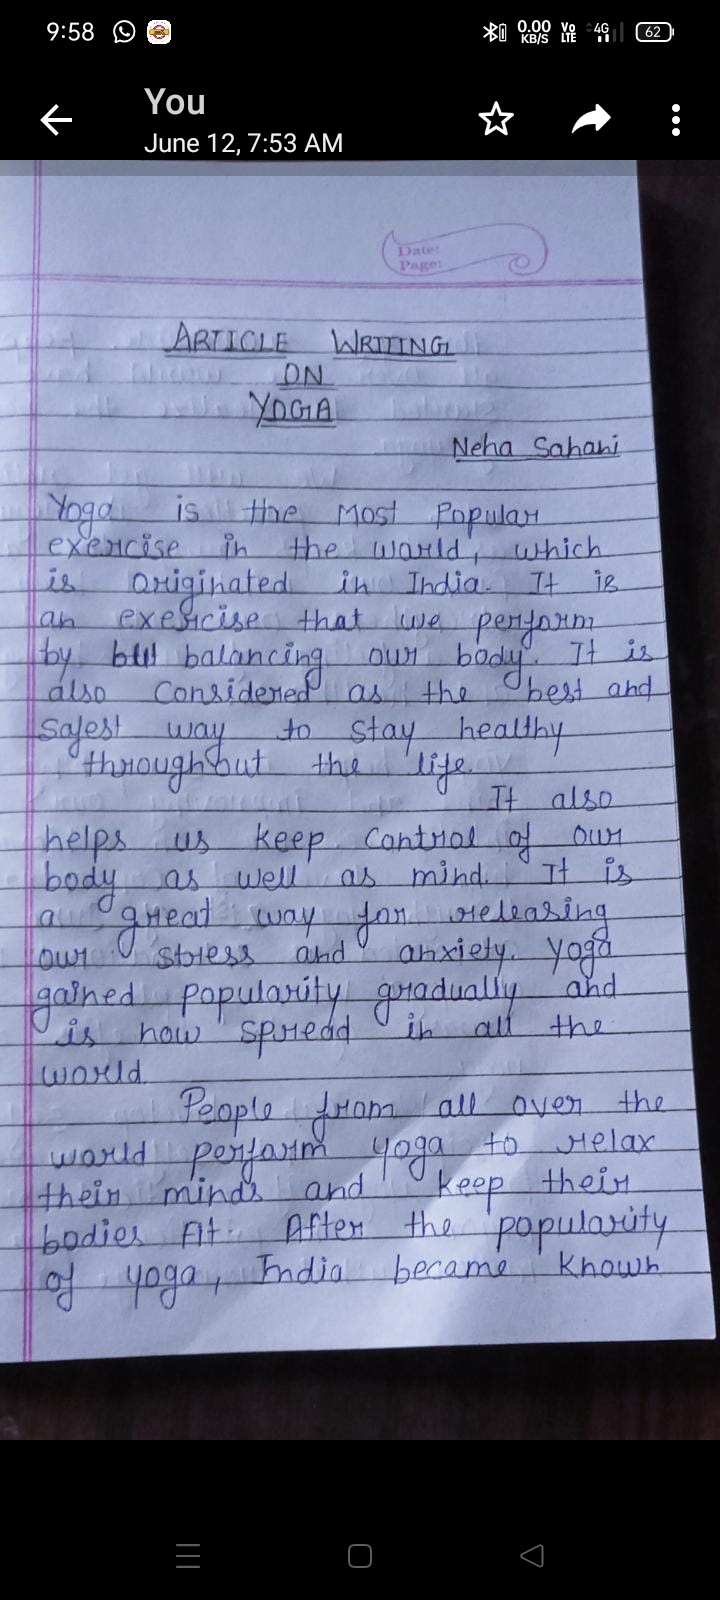 9:58
0.00
KB/S
Vo
LTE
4G
62
You
June 12, 7:53 AM
Date:
Page:
ARTICLE WRITING
ON
YOGA
Neha Sahani
Yoga is the Most Popular
exercise in the world, which
is originated in India. It is
an exercise that we perform
by balancing our body. It is
also considered as the best and
safest way to stay healthy
throughout the life.
It also
helps us keep control of our
body as well as mind. It is
a great way for releasing
our stress and anxiety. Yoga
gained popularity gradually and
is now spread in all the
world.
People from all over the
world perform yoga to relax
their minds and keep their
bodies fit. After the popularity
of yoga, India became known